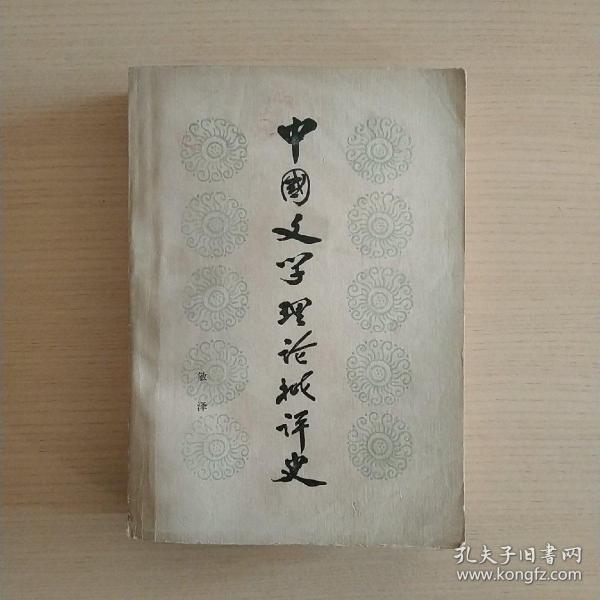 中國文学理论批评史
敏泽
孔夫子旧書网
www.kongfz.com